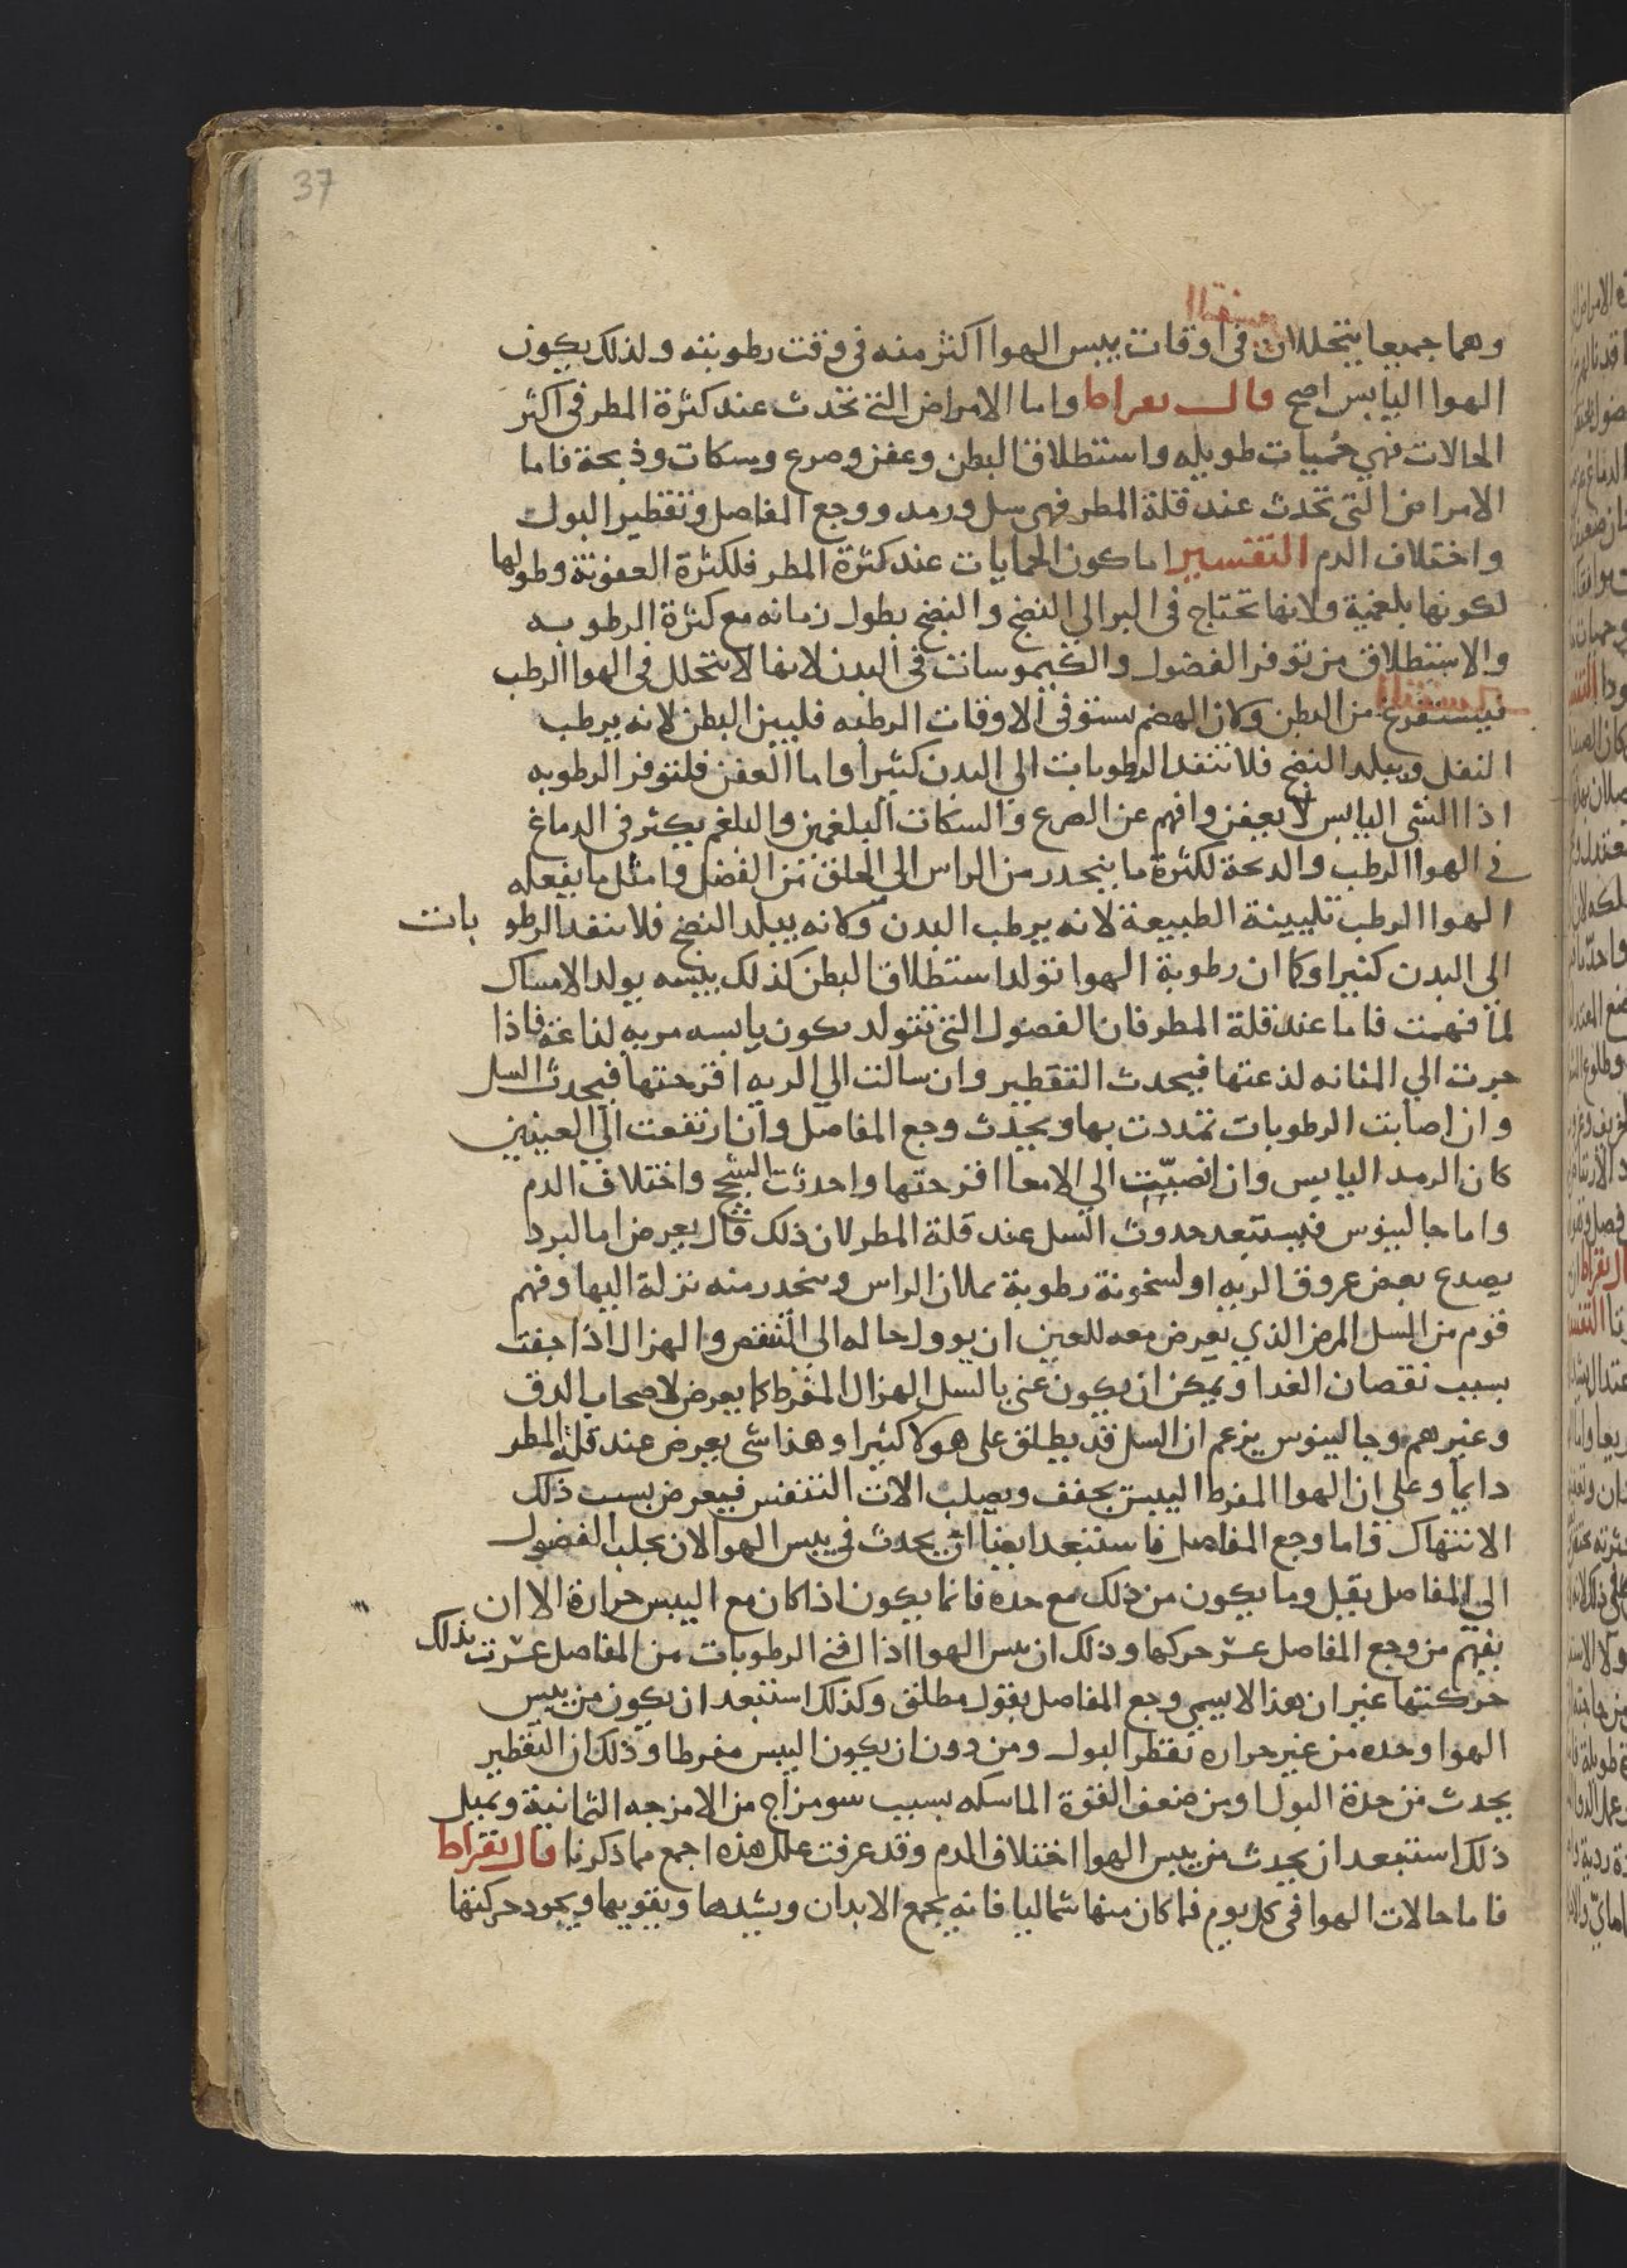 37
وهما جميعا يتحللان في اوقات يبس الهوا اكثر منه في وقت رطوبته ولذلك يكون
الهوا اليابس اصح قال بقراط واما الامراض التي تحدث عند كثرة المطر في اكثر
الحالات فهي حميات طويله واستطلاق البطن وعفن وصرع وسكات وذبحة فاما
الامراض التي تحدث عند قلة المطر فهي سل ورمد ووجع المفاصل وتقطير البول
واختلاف الدم التفسير اما كون الحمايات عند كثرة المطر فلكثرة العفونة وطولها
لكونها بلغمية ولانها تحتاج في البر الي النضج والنضج يطول زمانه مع كثرة الرطوبه
والاستطلاق من توفر الفضول والكيموسات في البدن لانها لا تتحلل في الهوا الرطب
فيستفرغ من البطن وكان الهضم يستوفي الاوقات الرطبه فليين البطن لانه يرطب
الثفل ويبلد النضج فلا تنفد الرطوبات الي البدن كثيرا واما العفن فلتوفر الرطوبه
اذا الشي اليابس لا يعفن وافهم عن الصرع والسكات البلغمين والبلغم يكثر في الدماغ
في الهوا الرطب والدبحة لكثرة ما ينحدر من الراس الي الحلق من الفضل وامثل ما يفعله
الهوا الرطب تليينة الطبيعة لانه يرطب البدن وكانه يبلد النضج فلا تنفد الرطو بات
الي البدن كثيرا وكما ان رطوبة الهوا تولد استطلاق البطن كذلك يبسه يولد الامساك
لما فهمت فاما عند قلة المطر فان الفضول التي تتولد يكون يابسه مريه لذاعة فاذا
جرت الي المثانه لذعتها فيحدث التقطير وان سالت الي الريه اقرحتها فيحدث السل
وان اصابت الرطوبات تمددت بها ويحدث وجع المفاصل وان ارتفعت الي العينين
كان الرمد اليابس وان انصبت الي الامعا اقرحتها واحدثت السحج واختلاف الدم
واما جالينوس فيستبعد حدوث السل عند قلة المطر لان ذلك قال يعرض اما لبرد
يصدع بعض عروق الريه او لسخونة رطوبة يملان الراس وينحدر منه نزلة اليها وفهم
قوم من السل المرض الذي يعرض معه للعين ان يوول حاله الي النقص والهزال اذا جفت
بسبب نقصان الغدا ويمكن ان يكون عني بالسل الهزال المفرط كما يعرض لاصحاب الدق
وغيرهم وجالينوس يزعم ان السل قد يطلق علي هولا كثيرا وهذا شي يعرض عند قلة المطر
دايما وعلي ان الهوا المفرط اليبس يجفف ويصلب الات التنفس فيعرض بسبب ذلك
الانتهاك واما وجع المفاصل فاستبعد ايضا ان يحدث في يبس الهوا لان يجلب الفضول
الي المفاصل يقل وما يكون من ذلك مع حده فانما يكون اذا كان مع اليبس حرارة الا ان
يفهم من وجع المفاصل عسر حركها وذلك ان يبس الهوا اذا افني الرطوبات من المفاصل عسرت بذلك
حركتها غير ان هذا لا يسمي وجع المفاصل بقول مطلق وكذلك استبعد ان يكون من يبس
الهوا وحده من غير حراره تقطر البول ومن دون ان يكون اليبس مفرطا وذلك ان التقطير
يحدث من حدة البول او من ضعف القوة الماسكه بسبب سو مزاج من الامزجه الثمانية وبميل
ذلك استبعد ان يحدث من يبس الهوا اختلاف الدم وقد عرفت علل هذه اجمع مما ذكرنا قال بقراط
فاما حالات الهوا في كل يوم فما كان منها شماليا فانه يجمع الابدان ويشدها ويقويها ويجود حركتها